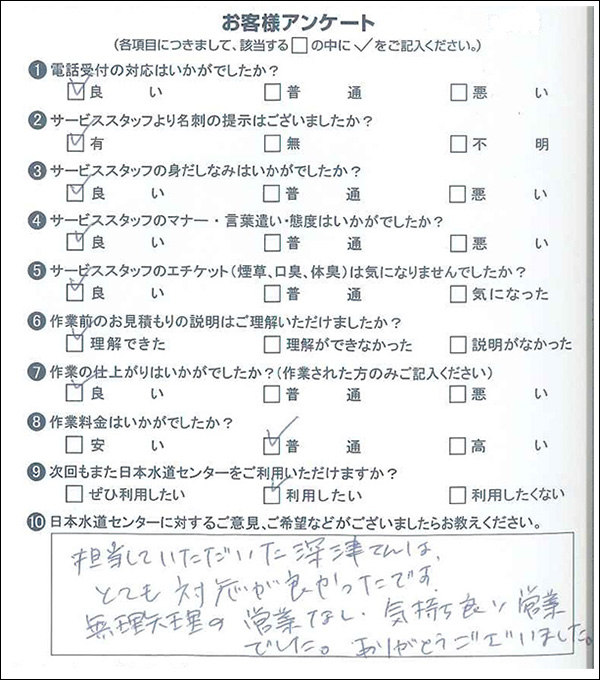 お客様アンケート
(各項目につきまして、該当する□の中に✓をご記入ください。)
❶電話受付の対応はいかがでしたか?
☑良い □普通 □悪い
❷サービススタッフより名刺の提示はございましたか?
☑有 □無 □不明
❸サービススタッフの身だしなみはいかがでしたか?
☑良い □普通 □悪い
❹サービススタッフのマナー・言葉遣い・態度はいかがでしたか?
☑良い □普通 □悪い
❺サービススタッフのエチケット(煙草、口臭、体臭)は気になりませんでしたか?
☑良い □普通 □気になった
❻作業前のお見積もりの説明はご理解いただけましたか?
☑理解できた □理解ができなかった □説明がなかった
❼作業の仕上がりはいかがでしたか?(作業された方のみご記入ください)
☑良い □普通 □悪い
❽作業料金はいかがでしたか?
□安い ☑普通 □高い
❾次回もまた日本水道センターをご利用いただけますか?
□ぜひ利用したい ☑利用したい □利用したくない
❿日本水道センターに対するご意見、ご希望などがございましたらお教えください。
担当していただいた深津さんは、
とても対応が良かったです。
無理矢理の営業なし、気持ち良い営業
でした。ありがとうございました。